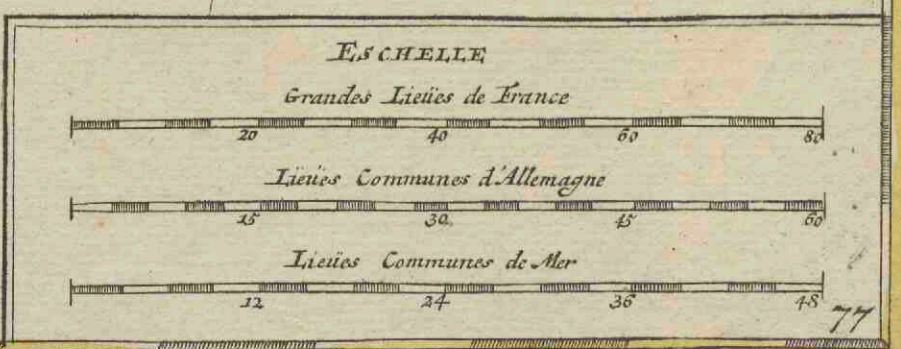 ESCHELLE
Grandes Lieües de France
20 40 60 80
Lieües Communes d'Allemagne
15 30 45 60
Lieües Communes de Mer
12 24 36 48
77